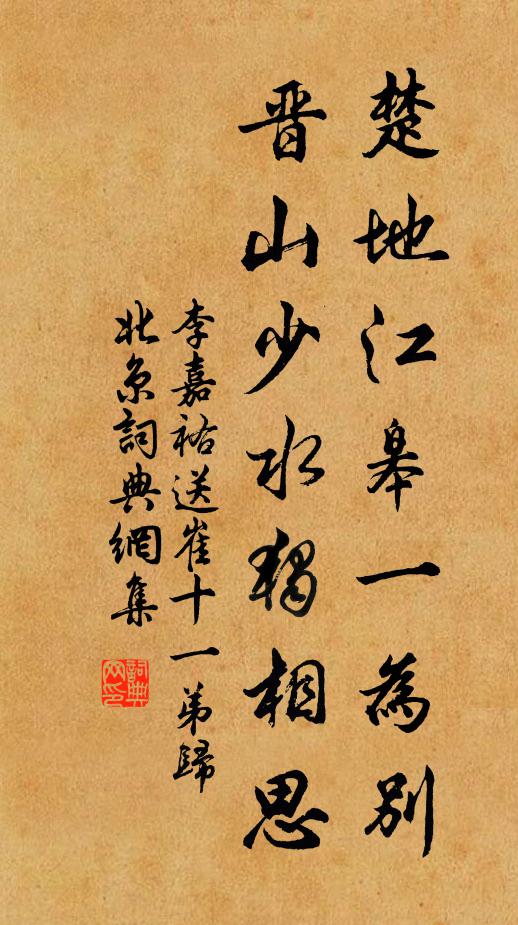 楚地江皋一為別
晋山少水獨相思
李嘉祐送崔十一弟歸
北京詞典網集
詞典网印